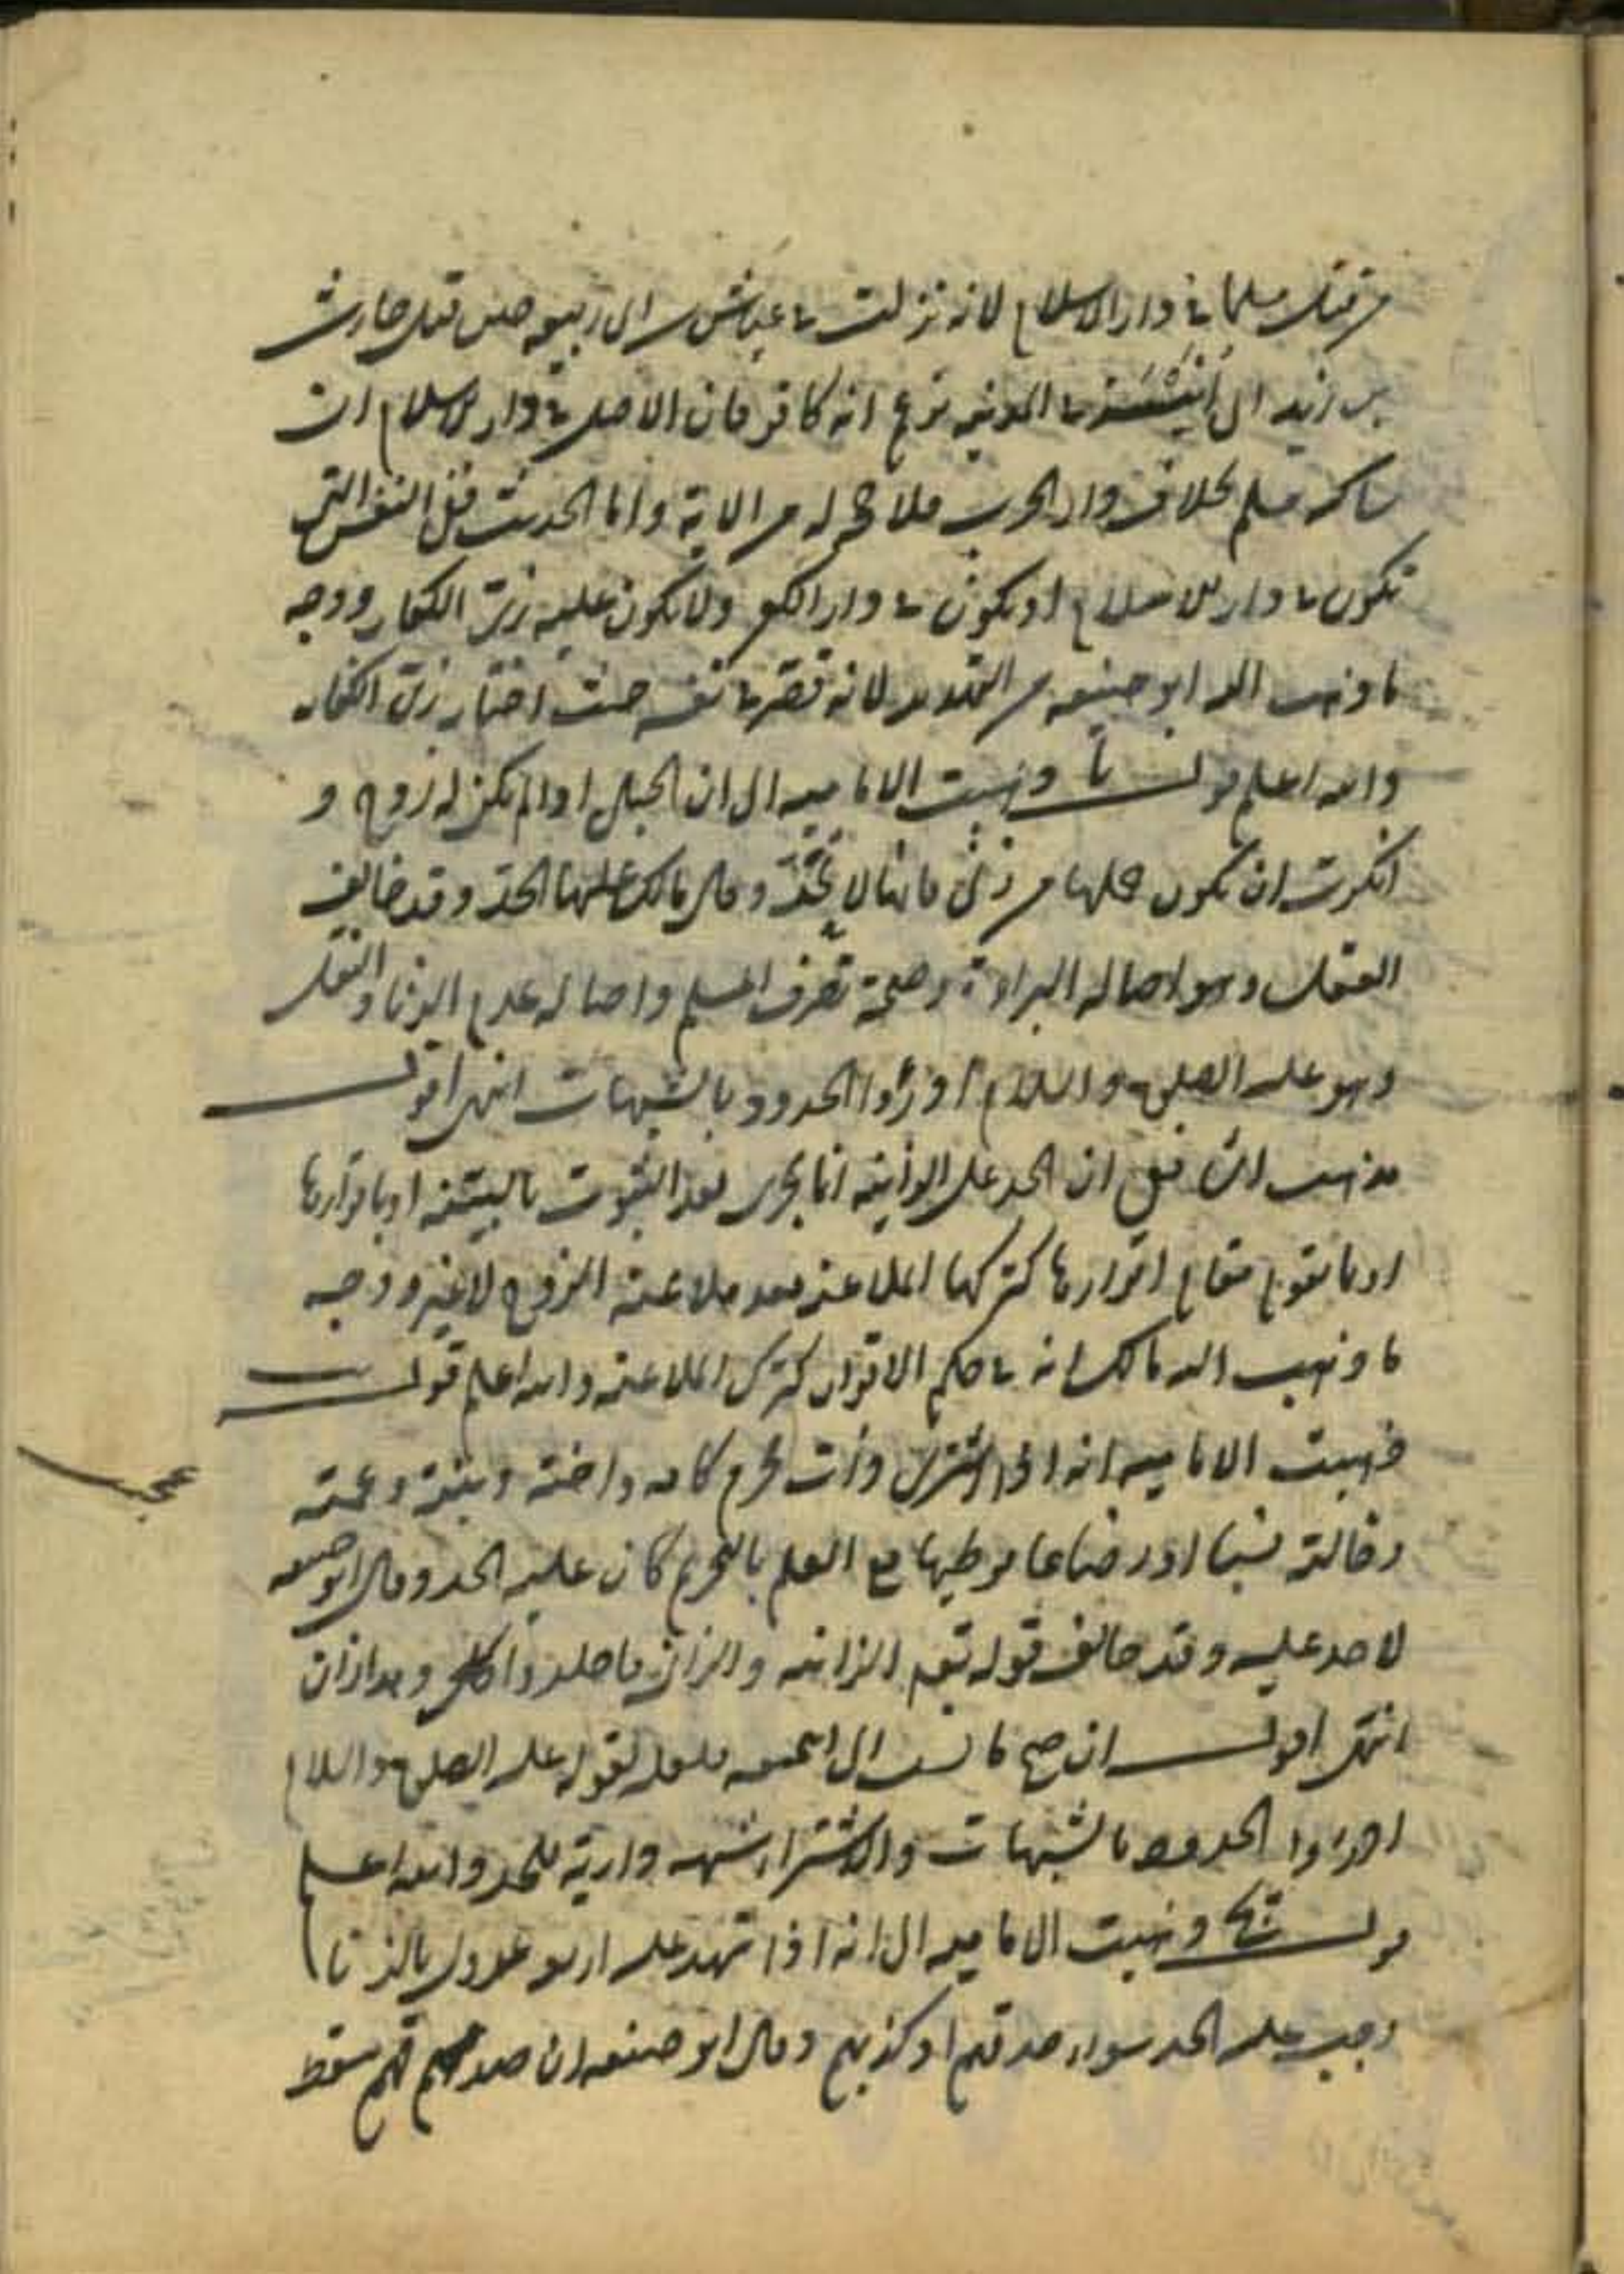 من قتل مسلما في دار الاسلام لانه نزلت في عياش بن ابي ربيعه حين قتل حارث
بن زيد ابي انيسة في المدينه بزعم انه كافر فان الاصل في دار الاسلام ان
ساكنه مسلم بخلاف دار الحرب فلا حجة له من الاية واما الحديث فنقل النفس التي
تكون في دار الاسلام او يكون في دار الكفر ولا يكون عليه زي الكفار ووجه
ما ذهب اليه ابو حنيفه من التهديد لانه قصر في نفسه حيث اختار زي الكفار
والله اعلم قوله نا ذهبت الاماميه الى ان الحبلى اذا لم يكن لها زوج و
انكرت ان يكون حملها من زنى فانها لا تحدّ وقال مالك عليها الحدّ وقد خالف
العقل وهو اصالة البراءة وصحة تصرف المسلم واصالة عدم الزنا والنقل
وهو عليه الصلوة والسلام ادرؤا الحدود بالشبهات انتهى اقول
مذهب الشافعي ان الحد على الزانية انما يجرى بعد الثبوت بالبينة او باقرارها
او بما يقوم مقام اقرارها كتركها الملاعنة بعد ملاعنة الزوج لا غير ووجه
ما ذهب اليه مالك انه في حكم الاقرار كترك الملاعنة والله اعلم قوله
ذهبت الاماميه انه اذا اشترى ذات محرم كامه واخته وبنته وعمته
وخالته نسبا او رضاعا فوطيها مع العلم بالتحريم كان عليه الحد وقال ابو حنيفه
لا حد عليه وقد خالف قوله تعم الزانيه والزاني فاجلدوا كل وهذا زان
انتهى اقول ان صح ما نسب الى ابي حنيفه فلعله لقوله عليه الصلوة والسلام
ادرؤا الحدود بالشبهات والاشتراء شبهه دارية للحد والله اعلم
قوله ذهبت الاماميه الى انه اذا شهد عليه اربعه عدول بالزنا
وجب عليه الحد سواء صدقهم او كذبهم وقال ابو حنيفه ان صدقهم سقط
عجيب